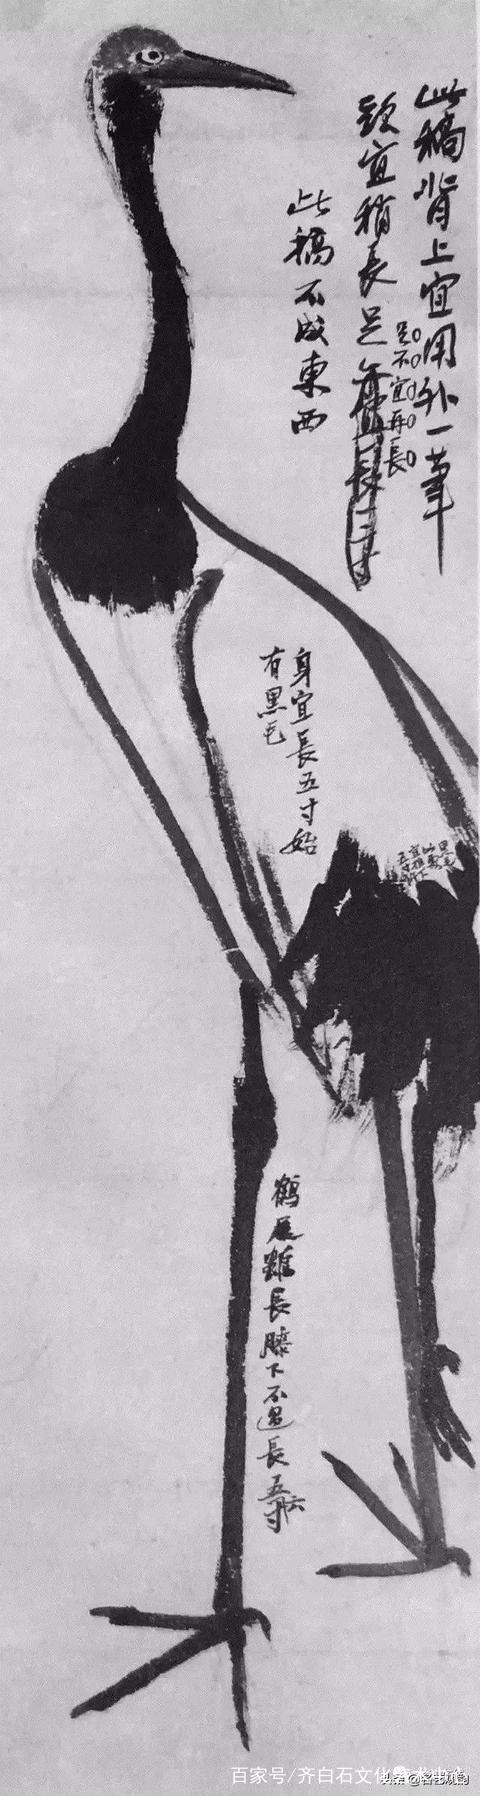 此稿背上宜用外一筆
頸宜稍長足
足不宜再長
此稿不成東西
身宜長五寸始
有黑毛
鶴雖長膝下不過長五六寸
百家号/齐白石文化